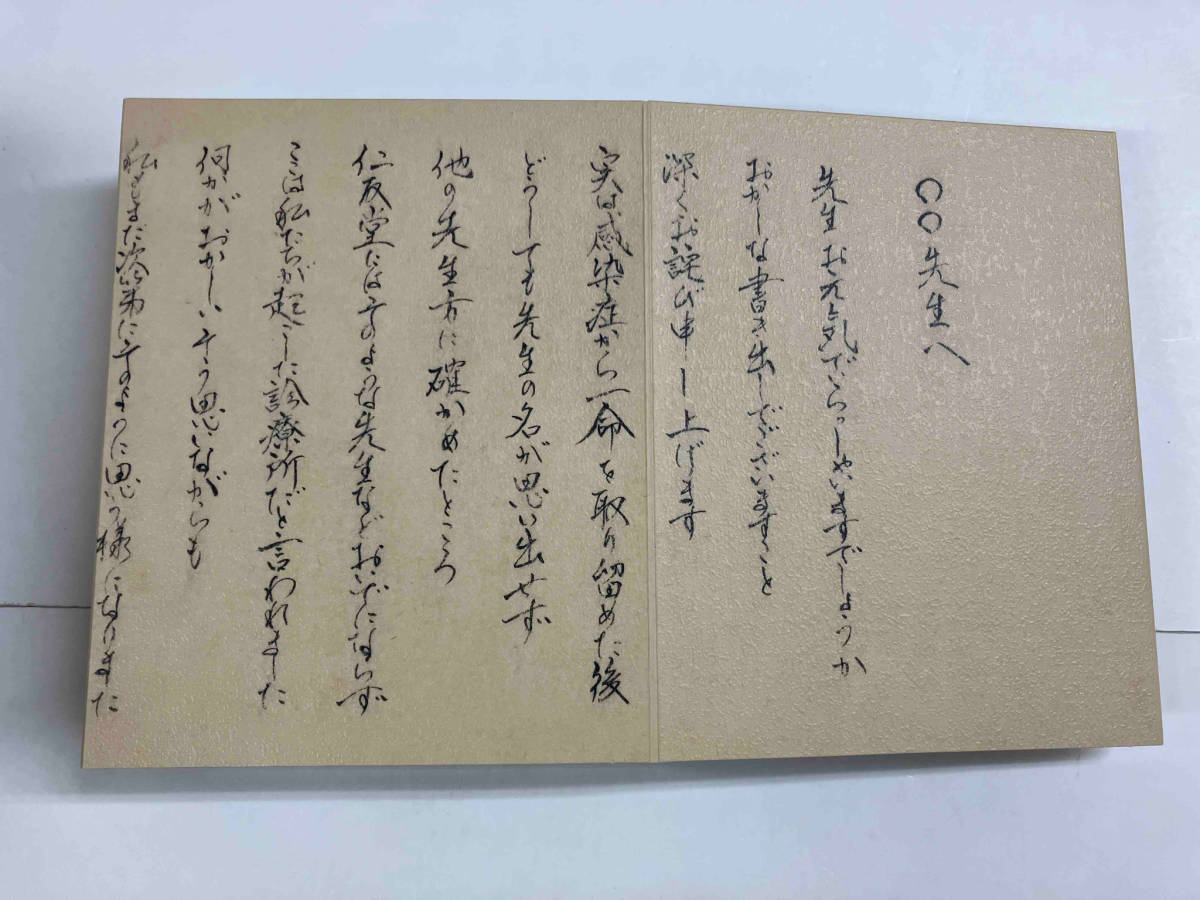 〇〇先生へ
先生お元気でいらっしゃいますでしょうか
おかしな書き出しでございますこと
深くお詫び申し上げます
実は感染症から一命を取り留めた後
どうしても先生の名が思い出せず
他の先生方に確かめたところ
仁友堂にはそのような先生などおいでにならず
ここは私たちが起こした診療所だと言われました
何がおかしいそう思いながらも
私もまた次第にそのように思う様になりました